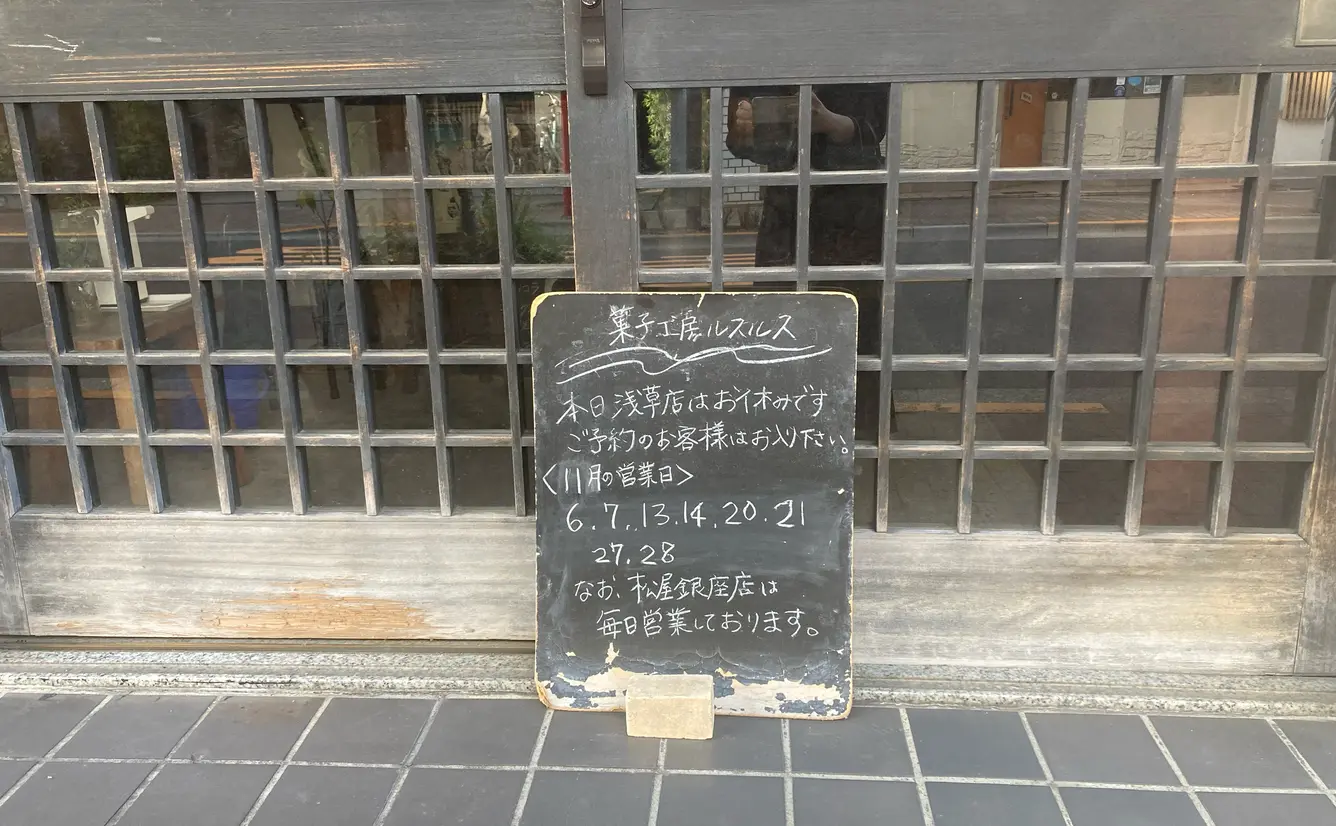 菓子工房ルスルス
本日浅草店はお休みです
ご予約のお客様はお入り下さい。
<11月の営業日>
6.7.13.14.20.21
27.28
なお、松屋銀座店は
毎日営業しております。